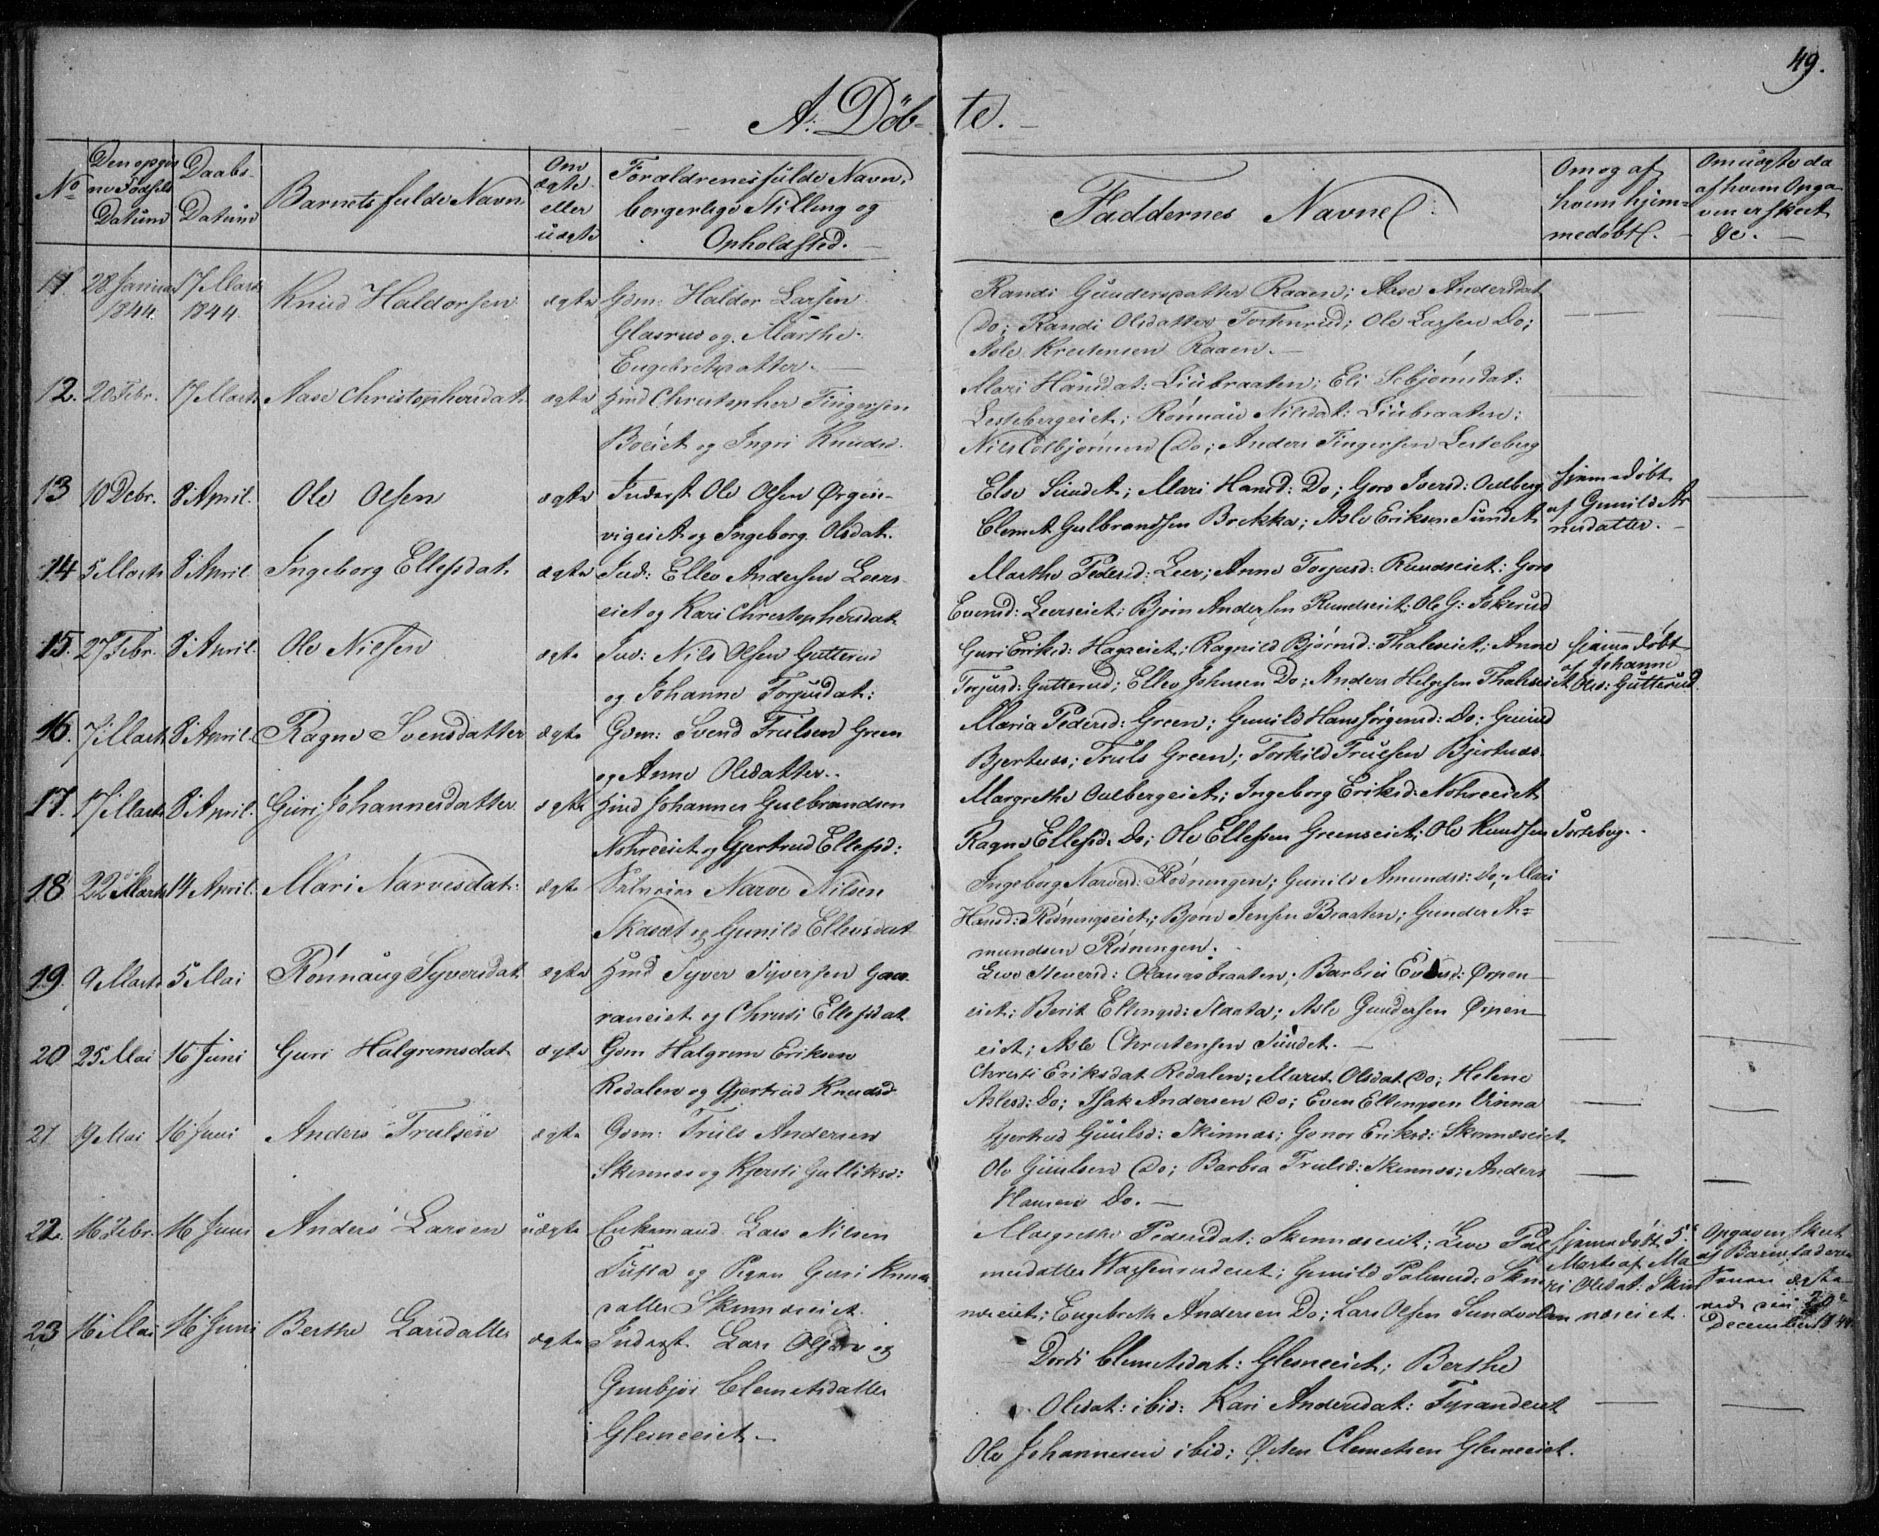 49.
A: Döb- te.
No
Den opgivne Fødsels Datum
Daabs- Datum
Barnets fulde Navn
Om ægte eller uægte
Forældrenes fulde Navn, borgerlige Stilling og Opholdsted.
Faddernes Navne
Om og af hvem hjemmedøbt.
Om uægte da af hvem Opgaven er skeet &c.
11. 28 Januar 1844. 17 Marts 1844. Knud Haldorsen ægte Gdm: Haldor Larsen
Glasrud og Marthe
Engebretsdatter.
Randi Gundersdatter Raaen; Aase Andersdat
Do; Randi Olsdatter Tostenrud; Ole Larsen Do;
Asle Kristensen Raaen.
12. 20 Febr. 17 Marts Aase Christophersdat. ægte Huusd Christopher Fingersen
Boeiet og Ingri Knudsd.
Mari Hansdat: Liubraaten; Eli Asbjørnsdat:
Lesteberg eiet; Rønnau Nilsdat: Liubraaten;
Nils Colbjørnsen Do; Anders Fingersen Lesteberg
13 10 Febr. 8 April. Ole Olsen ægte Inderst Ole Olsen Ørgen-
vigeiet og Ingeborg Olsdat.
Else Sundet; Mari Hansd: Do; Goro Iversd: Oulberg
Clemet Gulbrandsen Brekka; Asle Eriksen Sundet
Hjemmedøbt
af Gunild Ar
nesdatter.
14 5 Marts 8 April Ingeborg Ellefsdat. ægte Ind: Ellev Andersen Leers-
eiet og Kari Christophersdat
Marthe Pedersd: Leer; Anne Torjusd: Rundseiet; Goro
Evensd: Leerseiet; Bjørn Andersen Rundseiet; Ole G: Askerud
15. 27 Febr. 8 April. Ole Nilsen ægte Ind: Nils Olsen Gutterud
og Johanne Torjusdat:
Guri Eriksd: Hagaeiet; Ragnild Bjørnsd: Thaleseiet; Anne
Torjusd: Gutterud; Ellev Johnsen Do; Anders Helgesen Thaleseiet
Hjemmedøbt
af Johanne
Olsd: Gutterud
16. 7 Marts 8 April. Ragne Svensdatter ægte Gdm: Svend Trulsen Green
og Anne Olsdatter.
Maria Pedersd: Green; Gunild Hans Jørgensd: Do; Guri
Bjertnæs; Truls Green; Torkild Trulsen Bjertnæs.
17. 17 Marts 8 April. Guri Johannesdatter ægte Huusd Johannes Gulbrandsen
Nohreeiet og Gjertrud Ellefsd:
Margrethe Oulbergeiet; Ingeborg Eriksd: Nohreeiet
Ragne Ellefsd: Do; Ole Ellefsen Greenseiet; Ole Knudsen Torseberg.
18 22 Marts 14 April. Mari Narvesdat: ægte Selveier Narve Nilsen
Skaset og Gunild Ellevsdat
Ingeborg Narvesd: Rødningen; Gunild Amundsd: Do; Mari
Hansd: Rødningseiet; Bjørn Jensen Braaten; Gunder A-
mundsen Rødningen.
19. 9 Marts 5 Mai Rønnaug Syversdat ægte Huusd Syver Syversen Gaa-
raneiet og Christi Ellefsdat
Live Steversd: Olangsbraaten; Barbra Evensd: Ørpen-
eiet; Berit Ellingsd: Slaata; Asle Gundersen Ørpen-
eiet; Asle Christensen Sundet.
20 25 Mai 16 Juni Guri Halgrimsdat ægte Gdm Halgrim Eriksen
Rodalen og Gjertrud Knudsd
Christi Eriksdat Rodalen; Maret Olsdat Do; Helene
Aslesd: Do; Isak Andersen Do; Even Ellingsen Vinna
21 19 Mai 16 Juni Anders Trulsen ægte Gdm: Truls Andersen
Skinnes og Kjersti Gulliksd:
Gjertrud Guulsd: Skinnæs; Gonor Eriksd: Skinnæseiet
Ole Guulsen Do; Barbra Trulsd: Skinnes; Anders
Hansen Do.
22. 16 Febr. 16 Juni Anders Larsen uægte Enkemand Lars Nilsen
Tufta og Pigen Guri Knuds
datter Skinnæseiet.
Margrethe Pedersdat: Skinnæseiet; Live Pal
mesdatter Hassenrudeiet; Gunild Palmesd: Skin
næseiet; Engebreth Andersen Do; Lars Olsen Sundvolden
Hjemmedøbt 5
Marts af Ma
ri Olsdat: Skin
næseiet.
Opgaven skeet
af Barnefaderen
December 1844
23 16 Mai 16 Juni Berthe Larsdatter ægte Inderst Lars Olsen og
Gunbjør Clemetsdatter
Glesneeiet.
Dordi Clemetsdat: Glesneeiet; Berthe
Olsdat: ibid: Kari Andersdat: Tyrandeiet
Ole Johannesen ibid; Østen Clemetsen Glesneeiet.